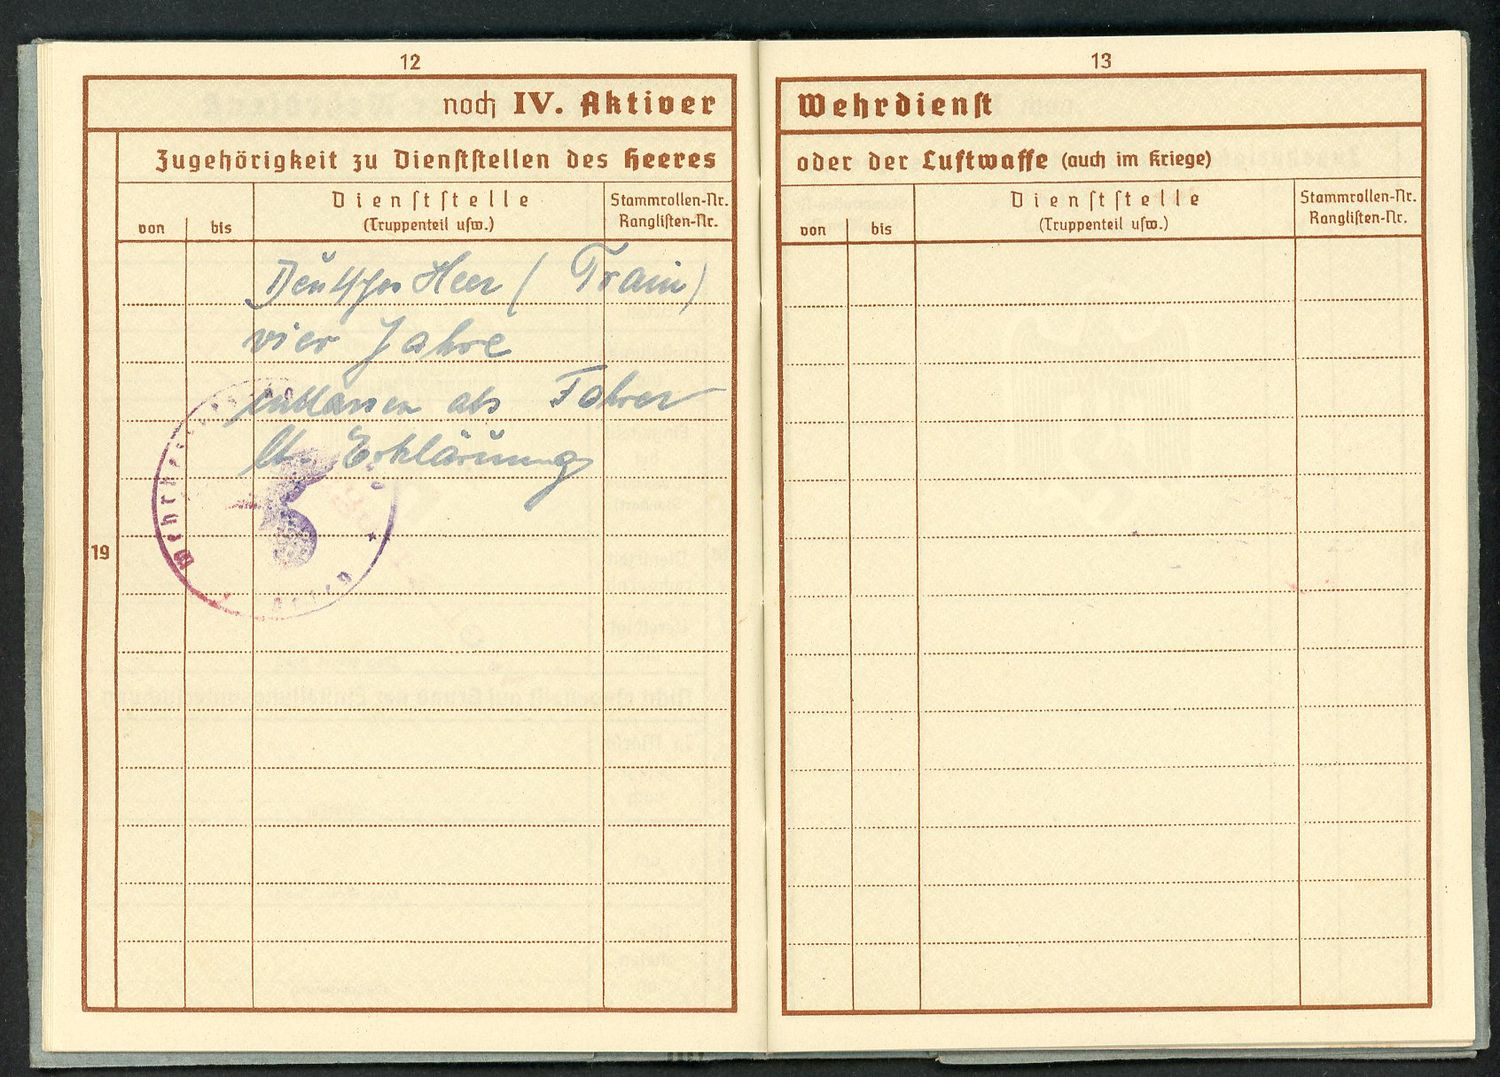 12
noch IV. Aktiver
Zugehörigkeit zu Dienststellen des Heeres
von
bis
Dienststelle
(Truppenteil usw.)
Stammrollen-Nr.
Ranglisten-Nr.
Deutsches Heer (Train)
vier Jahre
entlassen als Fahrer
lt. Erklärung
19
13
Wehrdienst
oder der Luftwaffe (auch im Kriege)
von
bis
Dienststelle
(Truppenteil usw.)
Stammrollen-Nr.
Ranglisten-Nr.